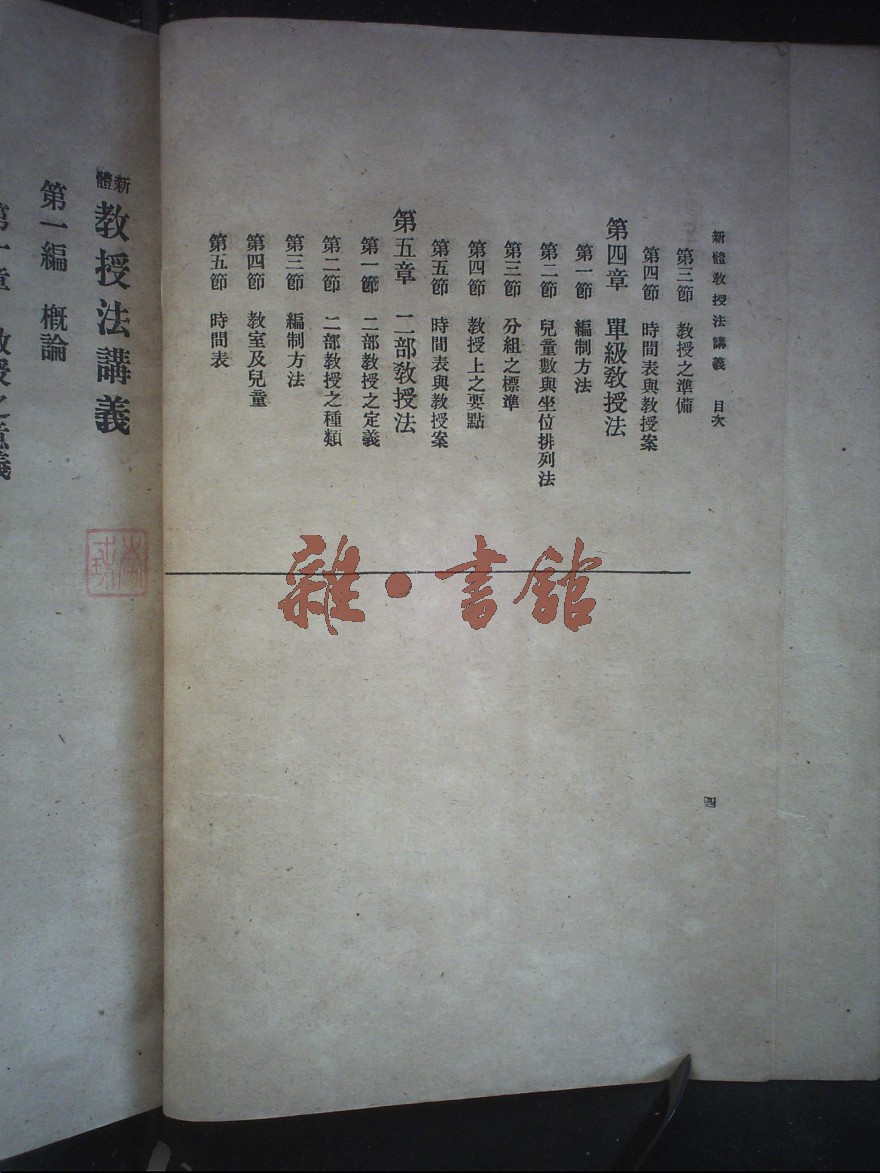 新體教授法講義 目次
第三節 教授之準備
第四節 時間表與教授案
第四章 單級教授法
第一節 編制方法
第二節 兒童數與坐位排列法
第三節 分組之標準
第四節 教授上之要點
第五節 時間表與教授案
第五章 二部教授法
第一節 二部教授之定義
第二節 二部教授之種類
第三節 編制方法
第四節 教室及兒童
第五節 時間表
四
雜·書館
新體教授法講義
第一編 概論
第一章 教授之意義